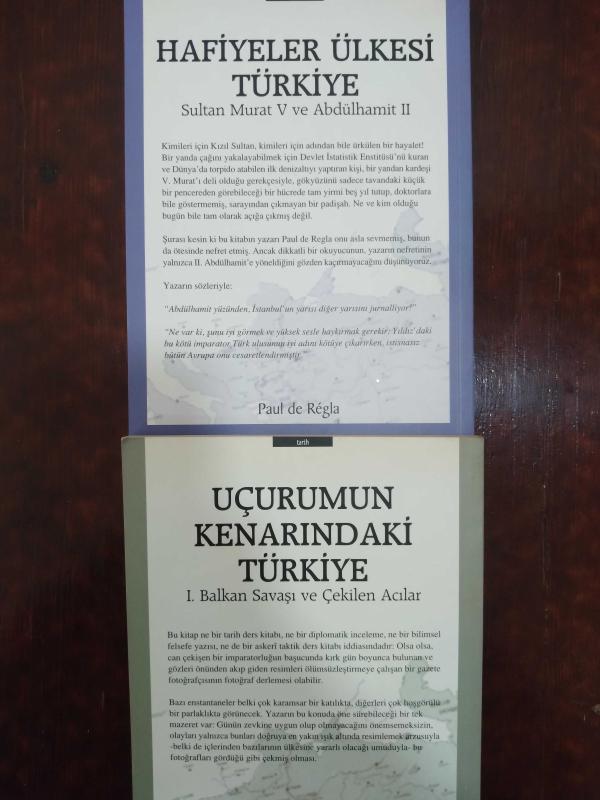 HAFİYELER ÜLKESİ
TÜRKİYE
Sultan Murat V ve Abdülhamit II
Kimileri için Kızıl Sultan, kimileri için adından bile ürkülen bir hayalet!
Bir yanda çağını yakalayabilmek için Devlet İstatistik Enstitüsü'nü kuran
ve Dünya'da torpido atabilen ilk denizaltıyı yaptıran kişi, bir yandan kardeşi
V. Murat'ı deli olduğu gerekçesiyle, gökyüzünü sadece tavandaki küçük
bir pencereden görebileceği bir hücrede tam yirmi beş yıl tutup, doktorlara
bile göstermemiş, sarayından çıkmayan bir padişah. Ne ve kim olduğu
bugün bile tam olarak açığa çıkmış değil.
Şurası kesin ki bu kitabın yazarı Paul de Regla onu asla sevmemiş, bunun
da ötesinde nefret etmiş. Ancak dikkatli bir okuyucunun, yazarın nefretinin
yalnızca II. Abdülhamit'e yöneldiğini gözden kaçırmayacağını düşünüyoruz.
Yazarın sözleriyle:
"Abdülhamit yüzünden, İstanbul'un yarısı diğer yarısını jurnalliyor!"
"Ne var ki, şunu iyi görmek ve yüksek sesle haykırmak gerekir: Yıldız'daki
bu kötü imparator Türk ulusunun iyi adını kötüye çıkarırken, istisnasız
bütün Avrupa onu cesaretlendirmiştir."
Paul de Régla
tarih
UÇURUMUN
KENARINDAKİ
TÜRKİYE
I. Balkan Savaşı ve Çekilen Acılar
Bu kitap ne bir tarih ders kitabı, ne bir diplomatik inceleme, ne bir bilimsel
felsefe yazısı, ne de bir askerî taktik ders kitabı iddiasındadır: Olsa olsa,
can çekişen bir imparatorluğun başucunda kırk gün boyunca bulunan ve
gözleri önünden akıp giden resimleri ölümsüzleştirmeye çalışan bir gazete
fotoğrafçısının fotoğraf derlemesi olabilir.
Bazı enstantaneler belki çok karamsar bir katılıkta, diğerleri çok hoşgörülü
bir parlaklıkta görünecek. Yazarın bu konuda öne sürebileceği bir tek
mazeret var: Günün zevkine uygun olup olmayacağını önemsemeksizin,
olayları yalnızca bunları doğruya en yakın ışık altında resimlemek arzusuyla
-belki de içlerinden bazılarının ülkesine yararlı olacağı umuduyla- bu
fotoğrafları gördüğü gibi çekmiş olması.